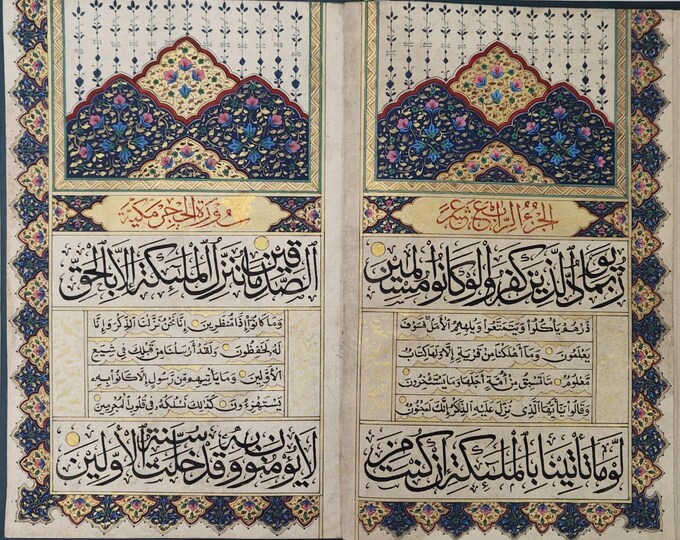 الجزء الرابع عشر
ربما يود الذين كفروا لو كانوا مسلمين
ذرهم يأكلوا ويتمتعوا ويلههم الأمل فسوف
يعلمون وما أهلكنا من قرية إلا ولها كتاب
معلوم ما تسبق من أمة أجلها وما يستئخرون
وقالوا يأيها الذي نزل عليه الذكر إنك لمجنون
لو ما تأتينا بالملئكة إن كنت من
سورة الحجر مكية
الصدقين ما ننزل الملئكة إلا بالحق
وما كانوا إذا منظرين إنا نحن نزلنا الذكر وإنا
له لحفظون ولقد أرسلنا من قبلك في شيع
الأولين وما يأتيهم من رسول إلا كانوا به
يستهزءون كذلك نسلكه في قلوب المجرمين
لا يؤمنون به وقد خلت سنة الأولين